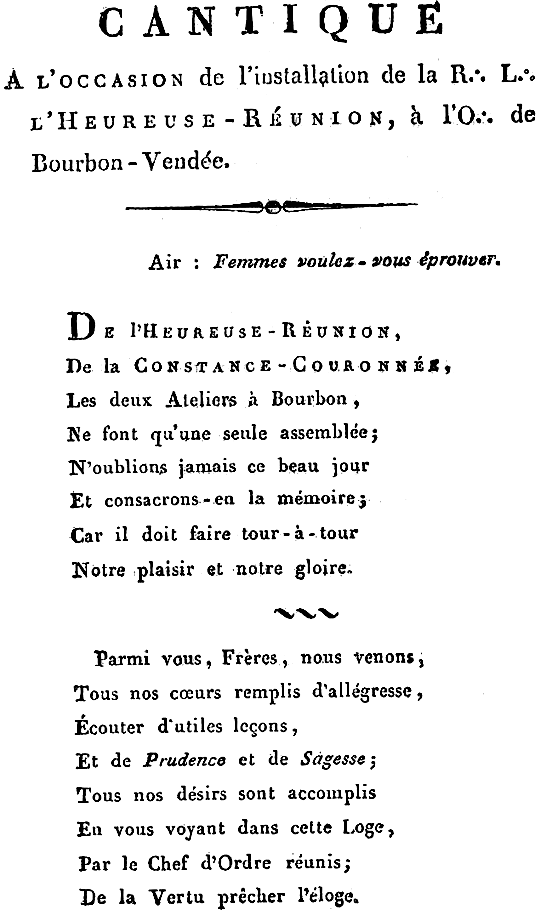 CANTIQUE
A L'OCCASION de l'installation de la R∴ L∴
L'HEUREUSE-RÉUNION, à l'O∴ de
Bourbon-Vendée.
Air : Femmes voulez-vous éprouver.
DE l'HEUREUSE-RÉUNION,
De la CONSTANCE-COURONNÉE,
Les deux Ateliers à Bourbon,
Ne font qu'une seule assemblée;
N'oublions jamais ce beau jour
Et consacrons-en la mémoire;
Car il doit faire tour-à-tour
Notre plaisir et notre gloire.
Parmi vous, Frères, nous venons,
Tous nos cœurs remplis d'allégresse,
Écouter d'utiles leçons,
Et de Prudence et de Sagesse;
Tous nos désirs sont accomplis
En vous voyant dans cette Loge,
Par le Chef d'Ordre réunis;
De la Vertu prêcher l'éloge.